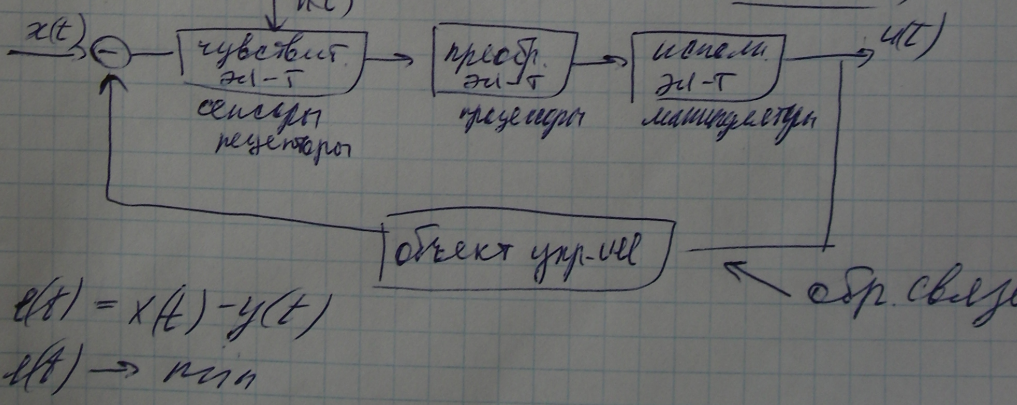 x(t)
чувствит.
эл-т
преобр.
эл-т
исполн.
эл-т
u(t)
сенсоры
рецепторы
процессоры
манипуляторы
объект упр-ия
обр. связь
e(t) = x(t) - y(t)
e(t) → min